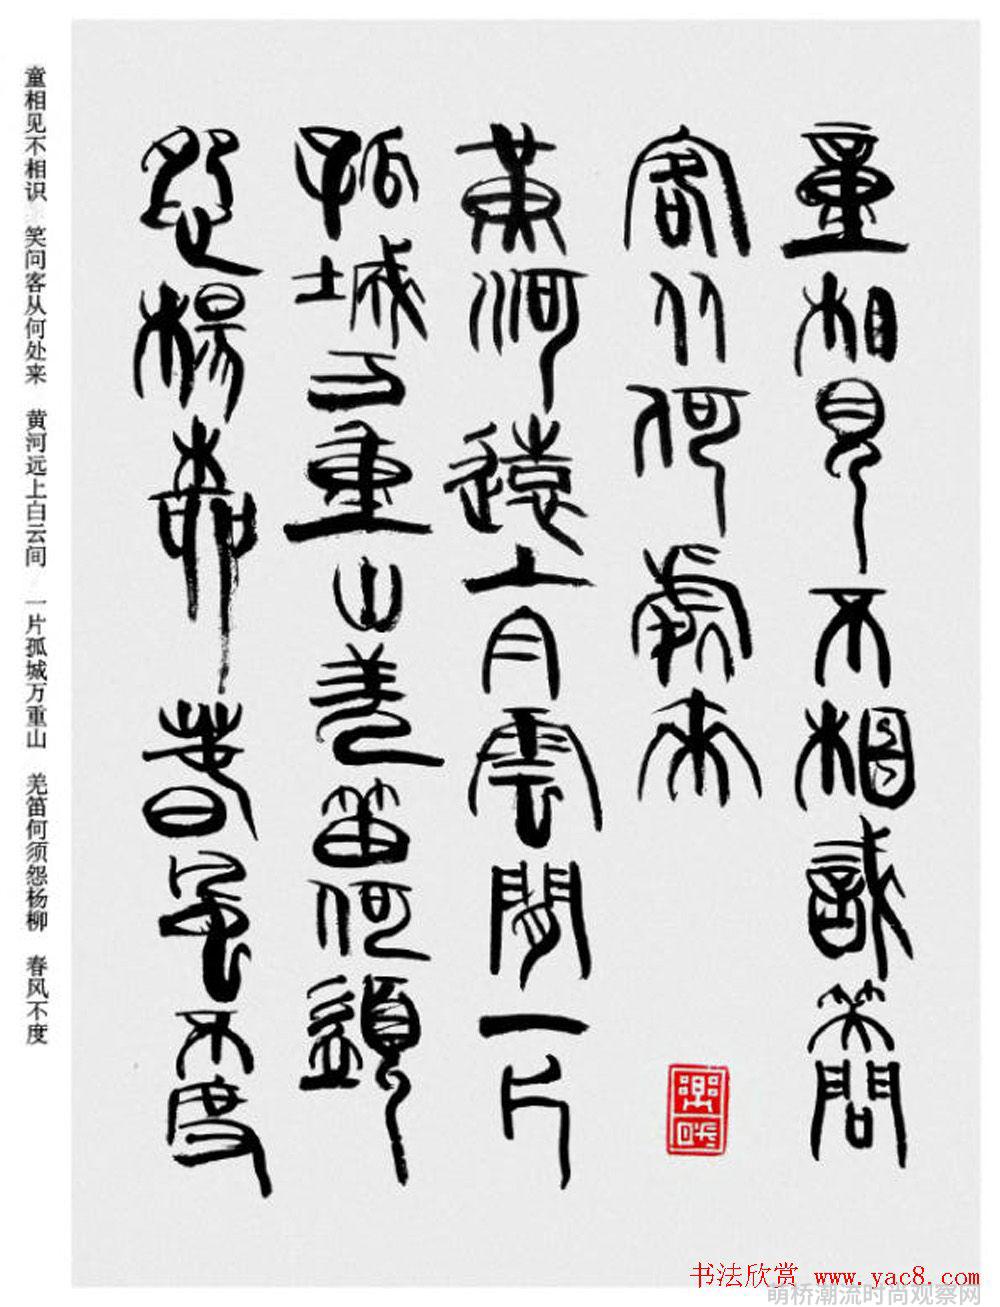 童相見不相識笑問
客從何處來
黃河遠上白雲間一片
孤城万重山羌笛何須
怨楊柳春風不度
童相见不相识 笑问客从何处来 黄河远上白云间 一片孤城万重山 羌笛何须怨杨柳 春风不度
书法欣赏 www.yac8.com
萌桥潮流时尚观察网